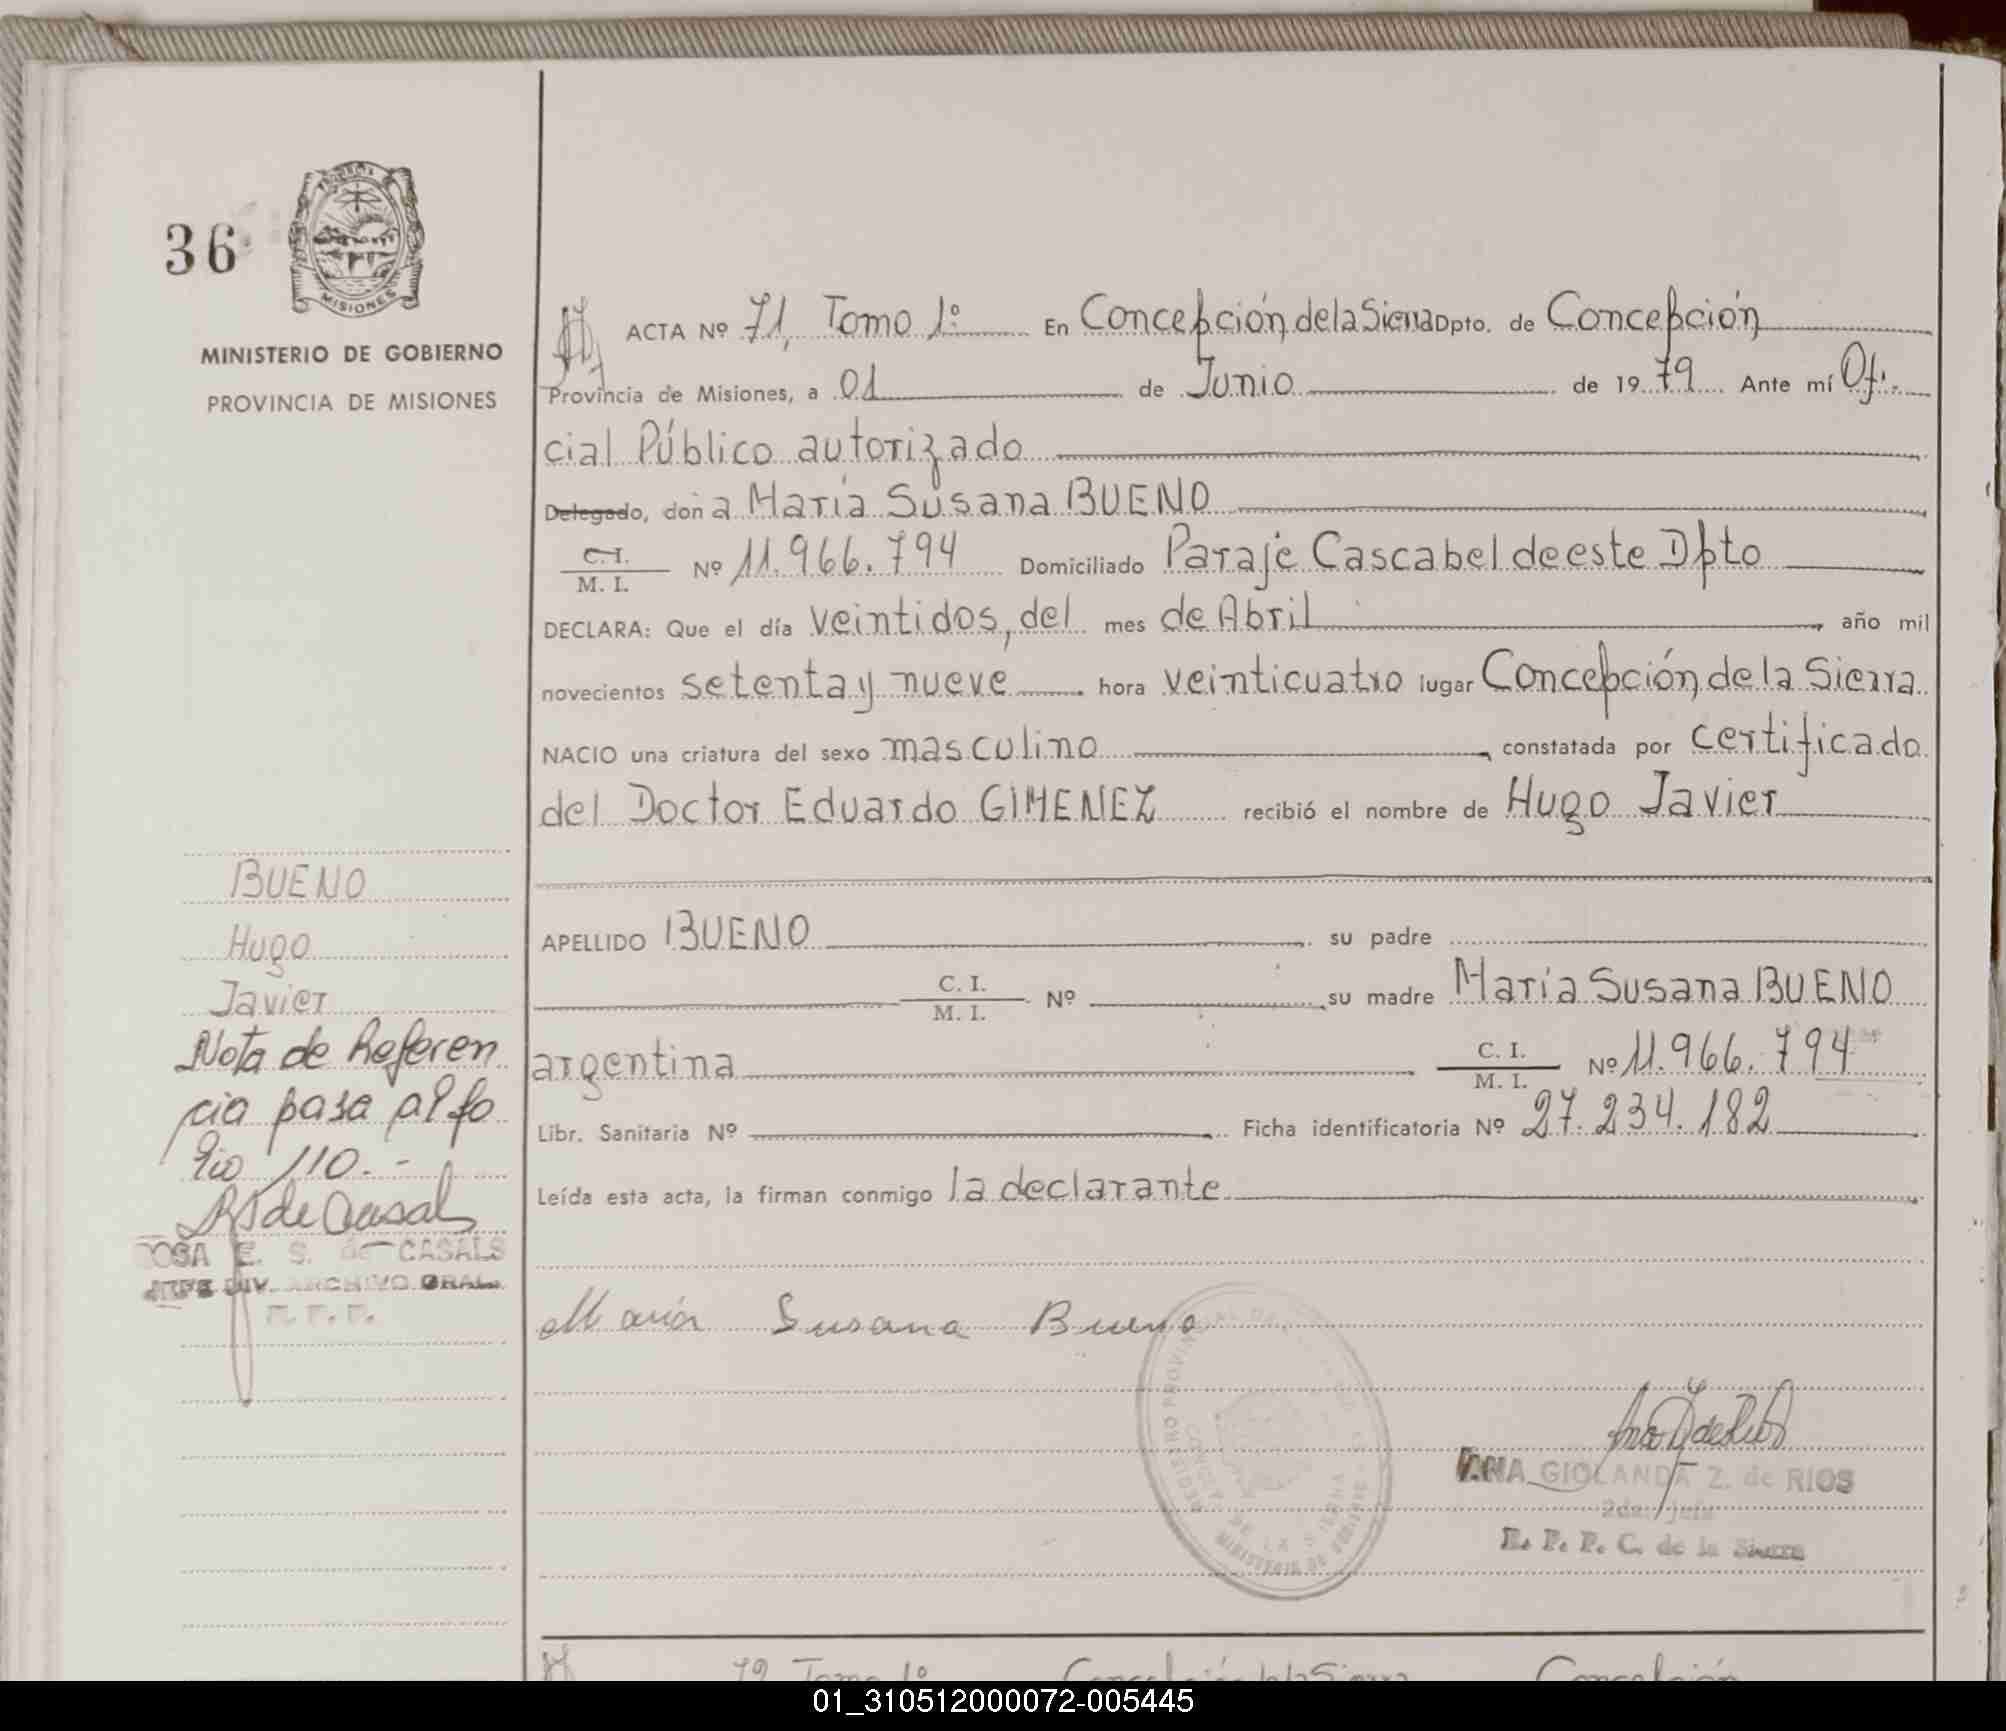 36
MISIONES
MINISTERIO DE GOBIERNO
PROVINCIA DE MISIONES
ACTA Nº 71, Tomo 1º En Concepción de la Sierra Dpto. de Concepción
Provincia de Misiones, a 01 de Junio de 1979 Ante mí Ofi.
cial Público autorizado
Delegado, don a María Susana BUENO
C. I.
M. I. Nº 11.966.794 Domiciliado Paraje Cascabel de este Dpto
DECLARA: Que el día veintidos, del mes de Abril, año mil
novecientos setenta y nueve hora veinticuatro lugar Concepción de la Sierra
NACIO una criatura del sexo masculino, constatada por certificado
del Doctor Eduardo GIMENEZ recibió el nombre de Hugo Javier
APELLIDO BUENO su padre
C. I.
M. I. Nº su madre María Susana BUENO
argentina C. I.
M. I. Nº 11.966.794
Libr. Sanitaria Nº Ficha identificatoria Nº 27.234.182
Leída esta acta, la firman conmigo la declarante
María Susana Bueno
BUENO
Hugo
Javier
Nota de Referen
cia pasa al fo
lio 110.-
RS de Casals
ROSA E. S. de CASALS
JEFE DIV. ARCHIVO GRAL.
R. P. P.
REGISTRO PROVINCIAL DE LAS
DE LA SIERRA
MINISTERIO DE GOBIERNO
ANA GIOLANDA Z. de RIOS
2da. Jefe
R. P. P. C. de la Sierra
72 Tomo 1º Concepción de la Sierra Concepción
01_310512000072-005445